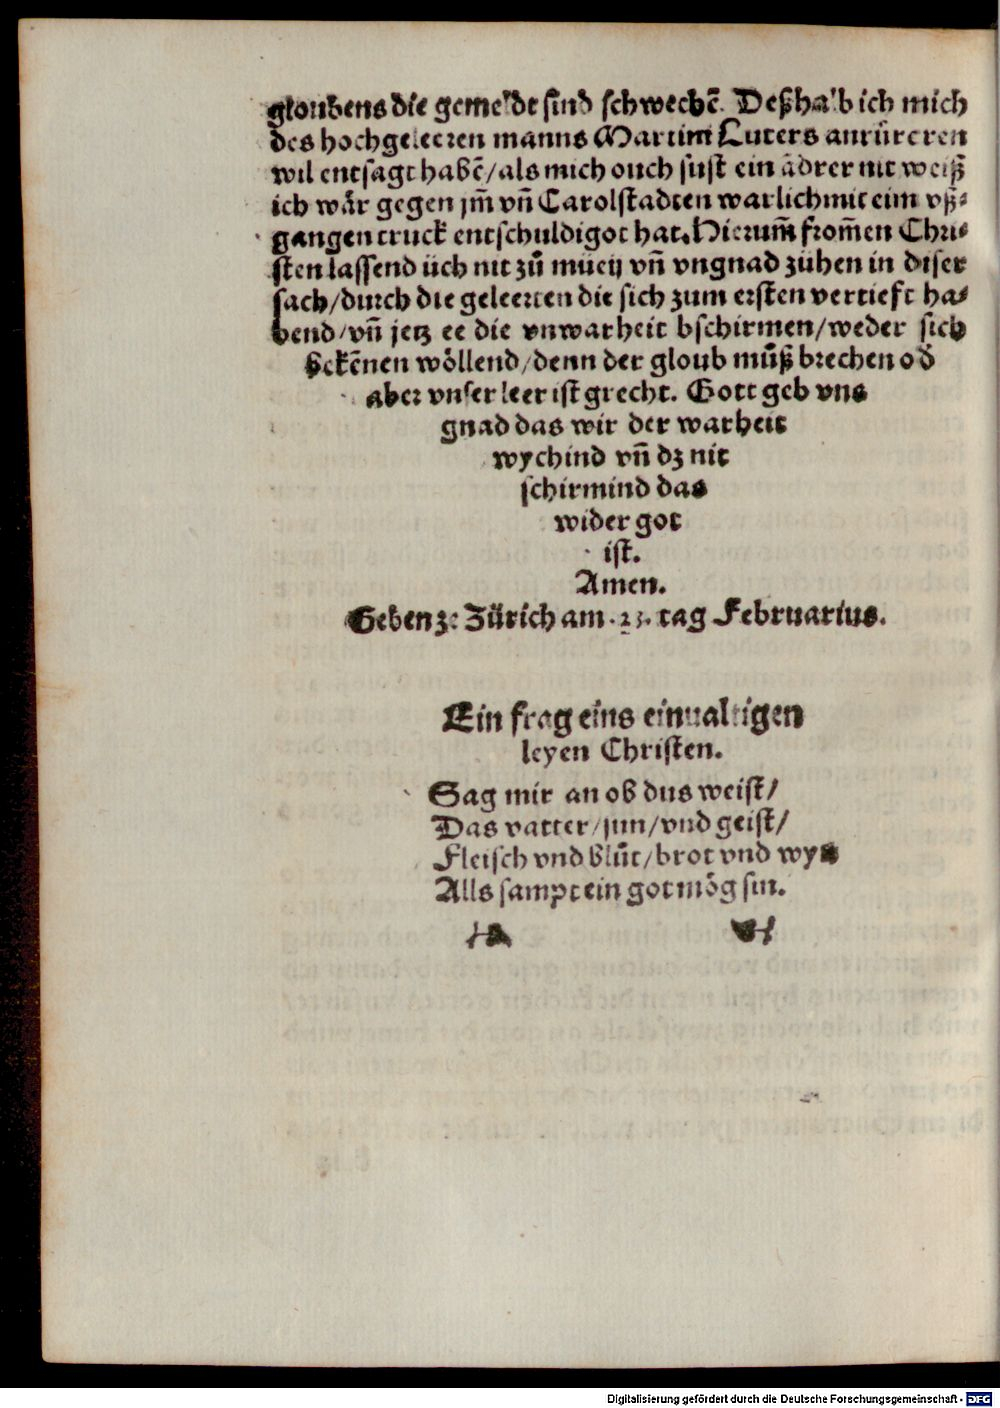 gloubens die gemeldt sind schwechē. Deßhalb ich mich
des hochgeleerten manns Martini Luters anrüreren
wil entsagt habē/als mich ouch sust ein ādrer nit weiß
ich wår gegen jm̄ vn̄ Carolstadten warlich mit eim vß⸗
gangen truck entschuldigot hat. Hierum̄ from̄en Chri⸗
sten lassend üch nit zů müey vn̄ vngnad zühen in diser
sach/durch die geleerten die sich zum ersten vertieft ha⸗
bend/vn̄ jetz ee die vnwarheit bschirmen/weder sich
bekēnen wöllend/denn der gloub můß brechen od̄
aber vnser leer ist grecht. Gott geb vns
gnad das wir der warheit
wychind vn̄ dz nit
schirmind das
wider got
ist.
Amen.
Geben ze Zürich am .23. tag Februarius.
Ein frag eins einualtigen
leyen Christen.
Sag mir an ob dus weist/
Das vatter/sun/vnd geist/
Fleisch vnd blůt/brot vnd wyn
Alls sampt ein got mög sin.
Digitalisierung gefördert durch die Deutsche Forschungsgemeinschaft - DFG